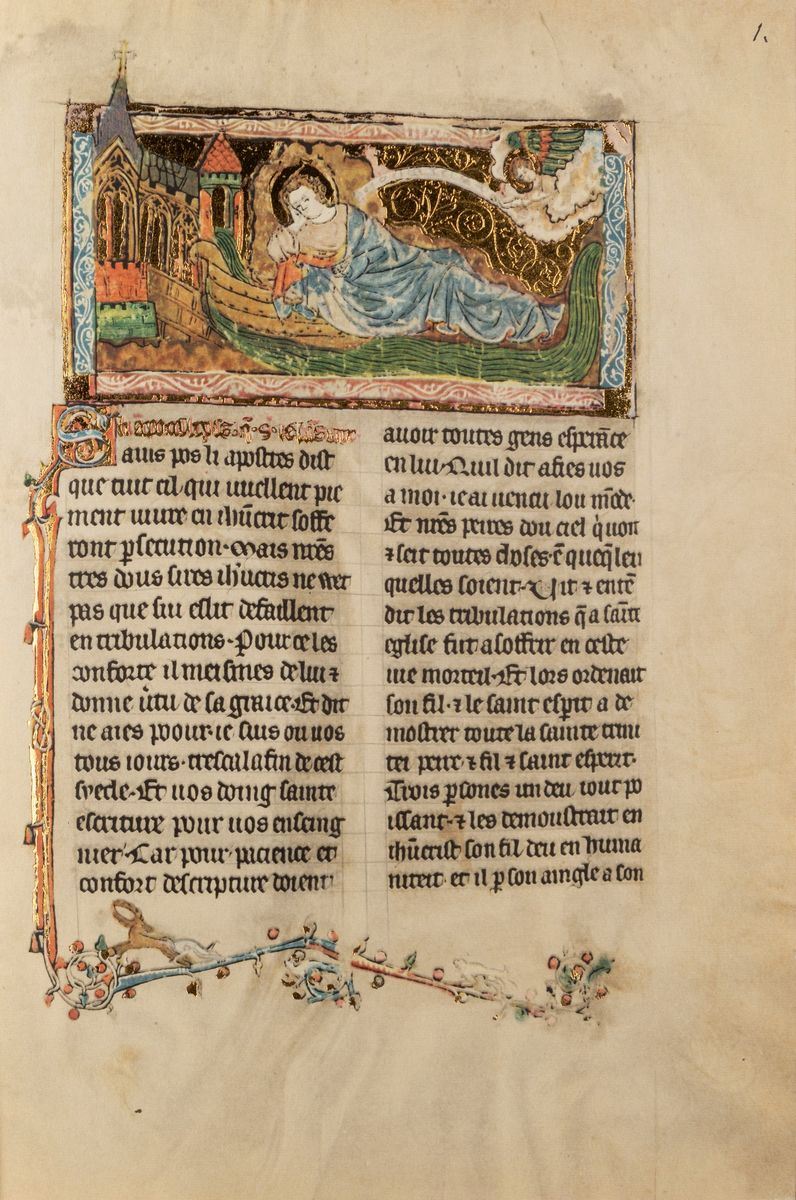 1.
Sains pos li apostres dist
que tuit cil qui vuellent pie
ment vivre en ih̄ucrist soffe
ront ꝑsecution. Mais nr̄es
tres dous sires ih'ucris ne wet
pas que sui eslit defaillent
en tribulations. Pour ce les
conforte il meismes de lui ⁊
donne ūtu de sa grace. Et dit
ne aies poour. ie suis ou vos
tous iours. tresca la fin de cest
syecle. Et uos doing sainte
escriture pour uos enseing
nier. Car pour pacience et
confort descripture doient
avoir toutes gens esperāce
en lui. Quil dit afies uos
a moi. ie ai uencu lou mōde.
Et nr̄es peires dou ciel q̇ uoit
⁊ seit toutes choses. ē queq̄ leu
quelles soient. Vit ⁊ entē
dit les tribulations q̄ a saīte
eglise fut a soffrir en ceste
uie morteil. Et lors ordenait
son fil. ⁊ le saint esp̄it a de
mostrer toute la sainte trini
tei peire ⁊ fil ⁊ saint esperit.
Trois ꝑsones un deu tout po
issant. ⁊ les demoustrait en
ih̄ucrist son fil deu en huma
niteit. et il ꝑ son aingle a son